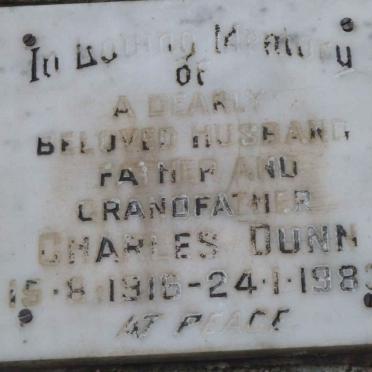 In Loving Memory
of
A DEARLY
BELOVED HUSBAND
FATHER AND
GRANDFATHER
CHARLES DUNN
15·8·1916-24·1·1983
AT PEACE